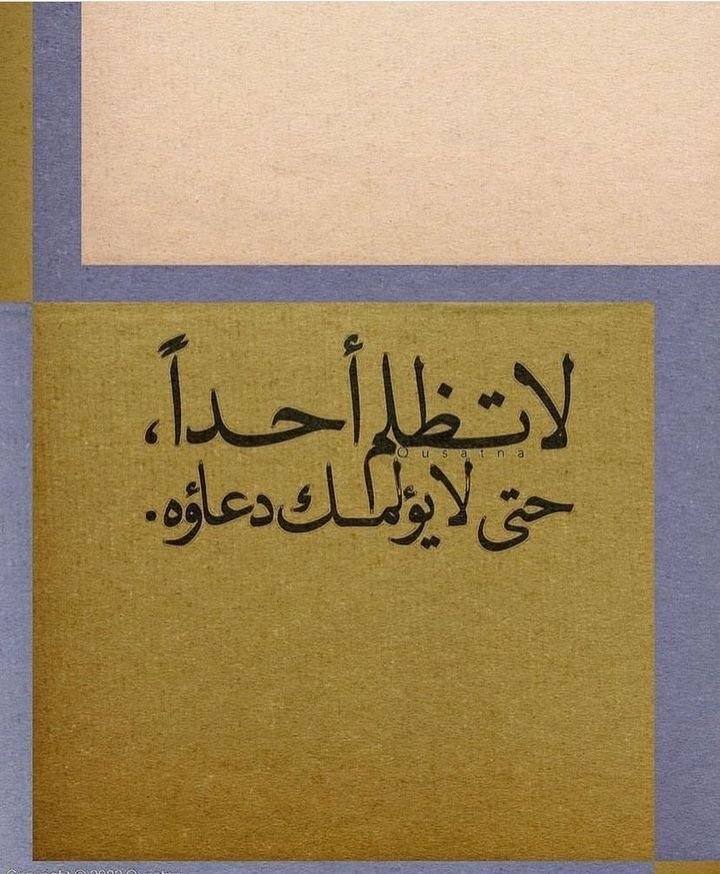 لا تظلم أحداً،
Qusatna
حتى لا يؤلمك دعاؤه.